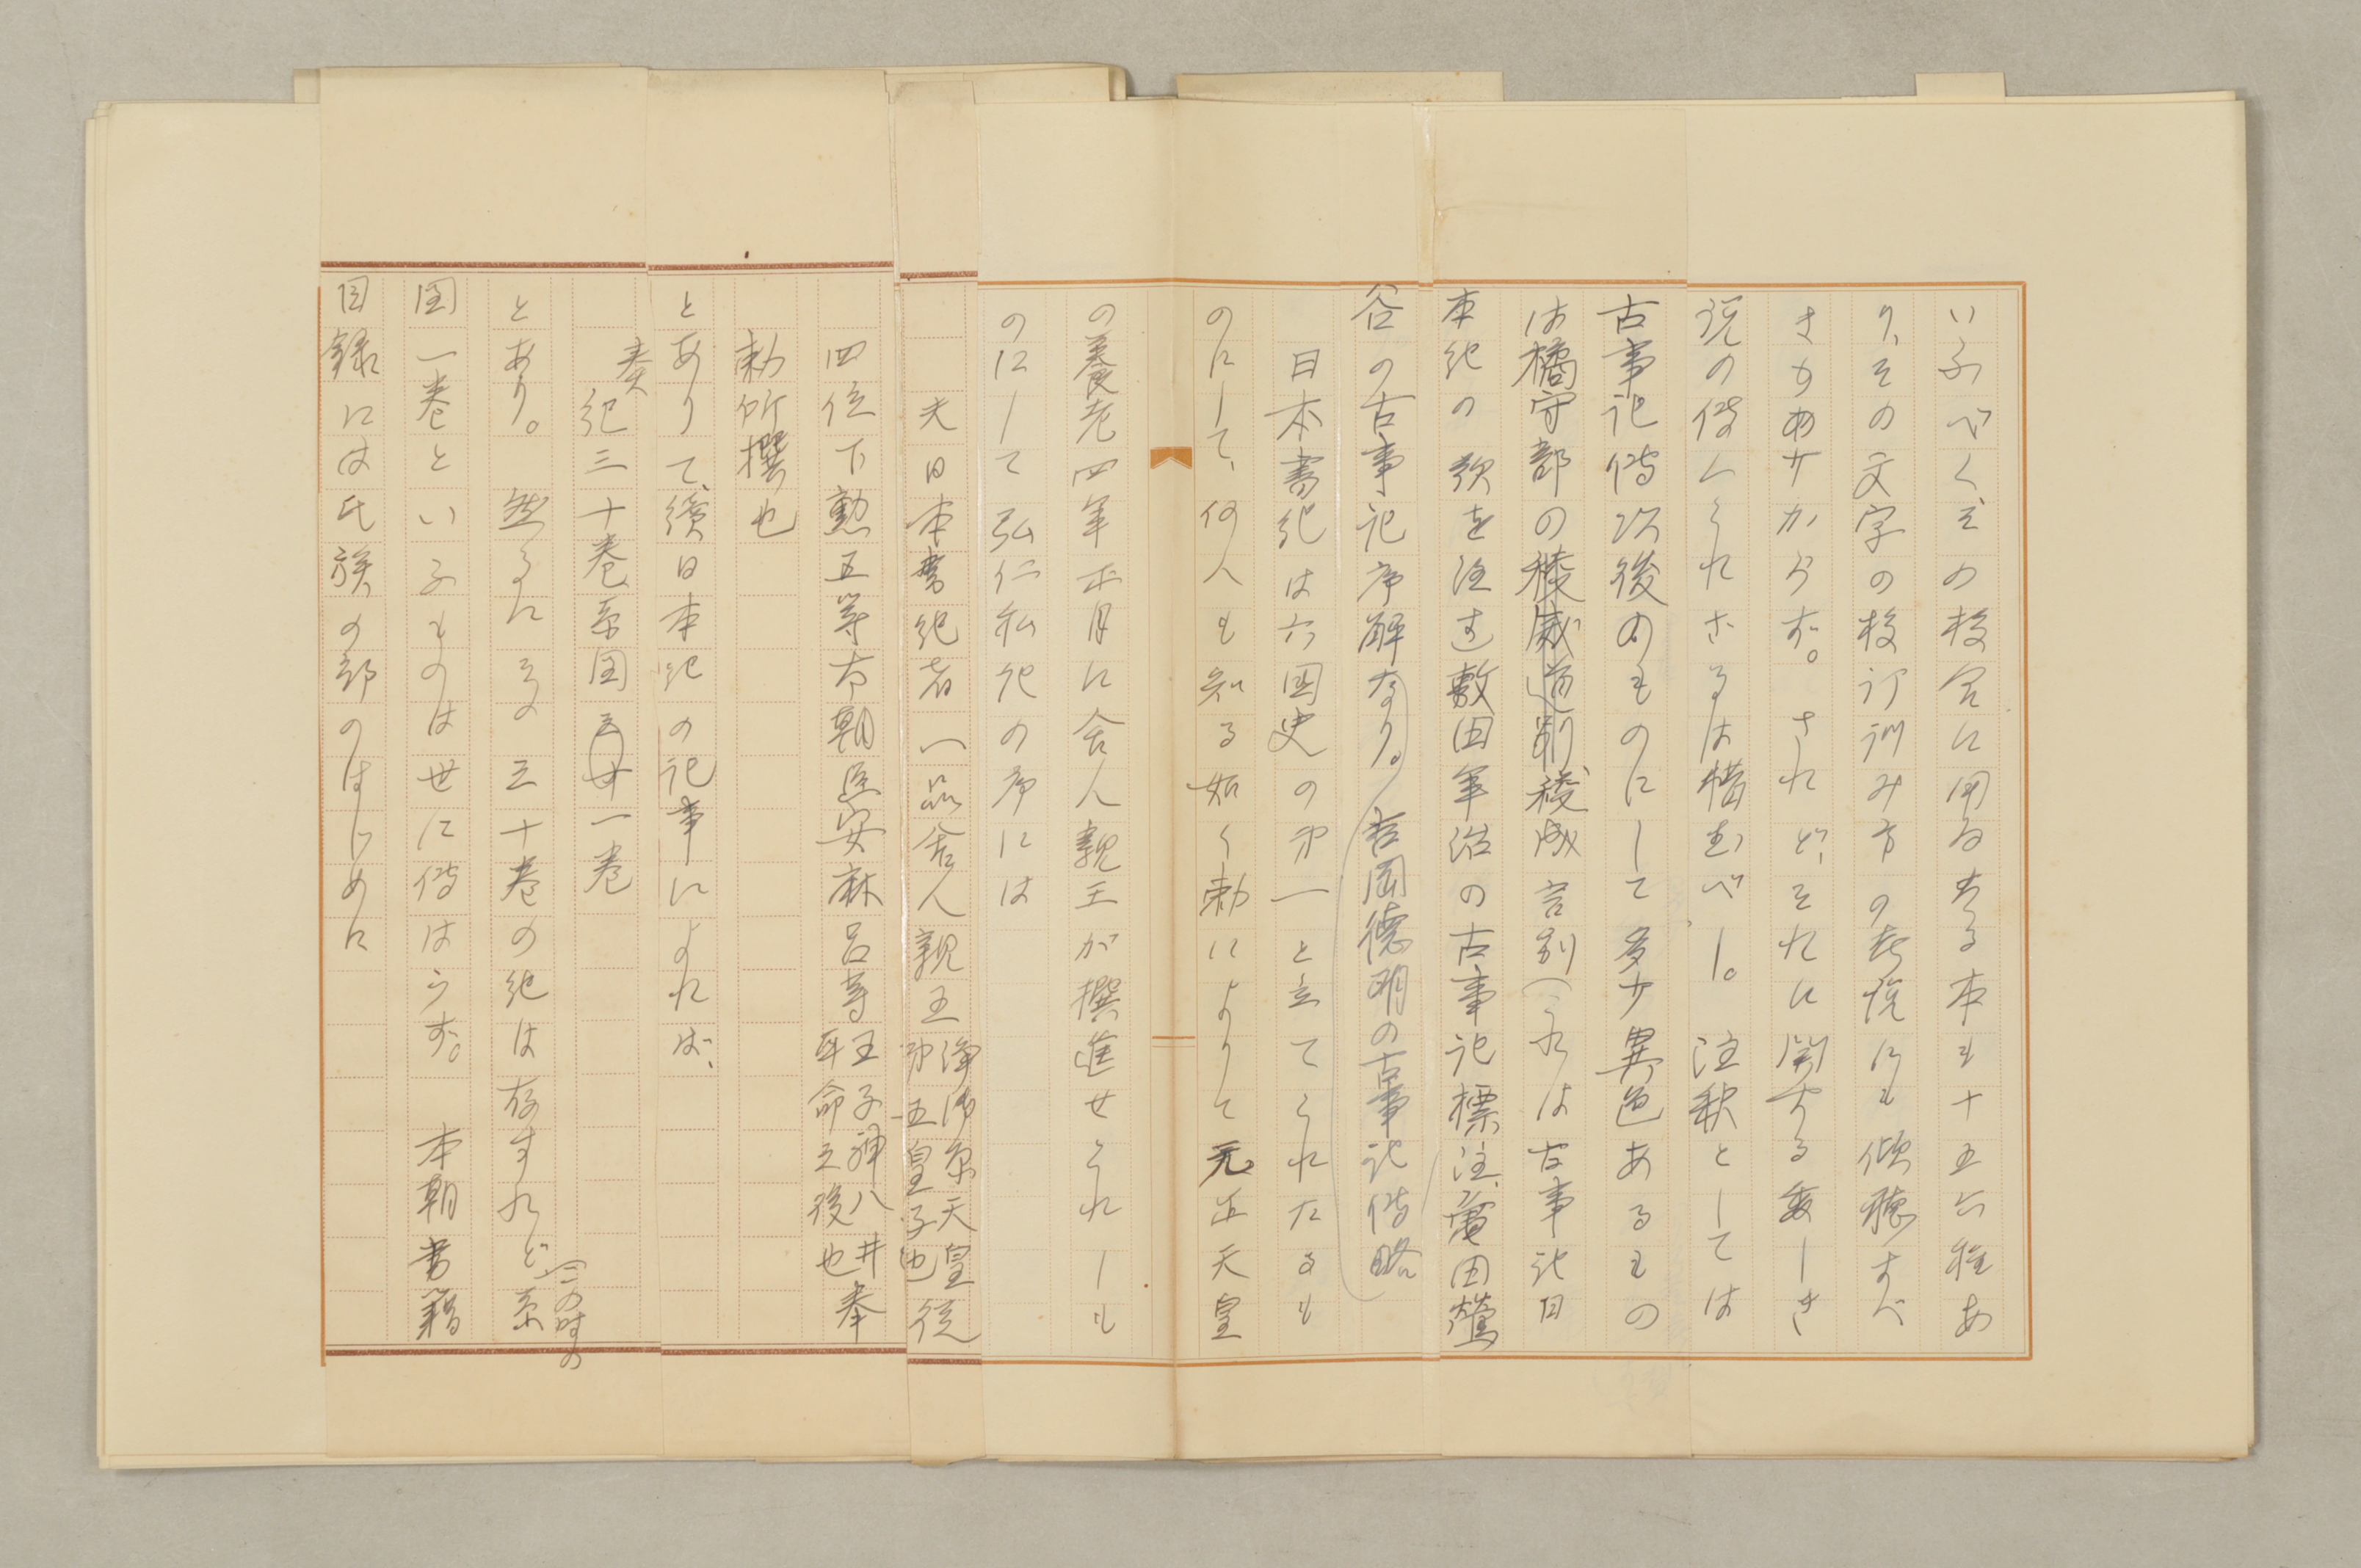 いふべく、その校合に用ゐたる本も十五六種あ
り、その文字の校訂訓み方の考説にも傾聴すべ
きもの少からず。されど、それに関する委しき
説の伝へられざるは惜むべし。注釈としては
古事記伝次後のものにして多少異色あるもの
は橘守部の稜威道別稜威言別(これは古事記日
本紀の歌を注す)敷田年治の古事記標注、亀田鶯
谷の古事記序解なり。吉岡徳明の古事記伝略
日本書紀は六国史の第一と立てられたるも
のにして、何人も知る如く勅によりて元正天皇
の養老四年五月に舎人親王が撰進せられしも
のにして弘仁私記の序には
夫日本書紀者 一品舎人親王浄御原天皇第五皇子也従
四位下勲五等太朝臣安麻呂等王子神八井耳命之後也奉
勅所撰也
とありて、續日本紀の記事によれば、
奏紀三十巻系図一巻
とあり。然るにその三十巻の紀は存すれど(この時の)系
図一巻といふものは世に伝はらず。本朝書籍
目録には氏族の部のはじめに